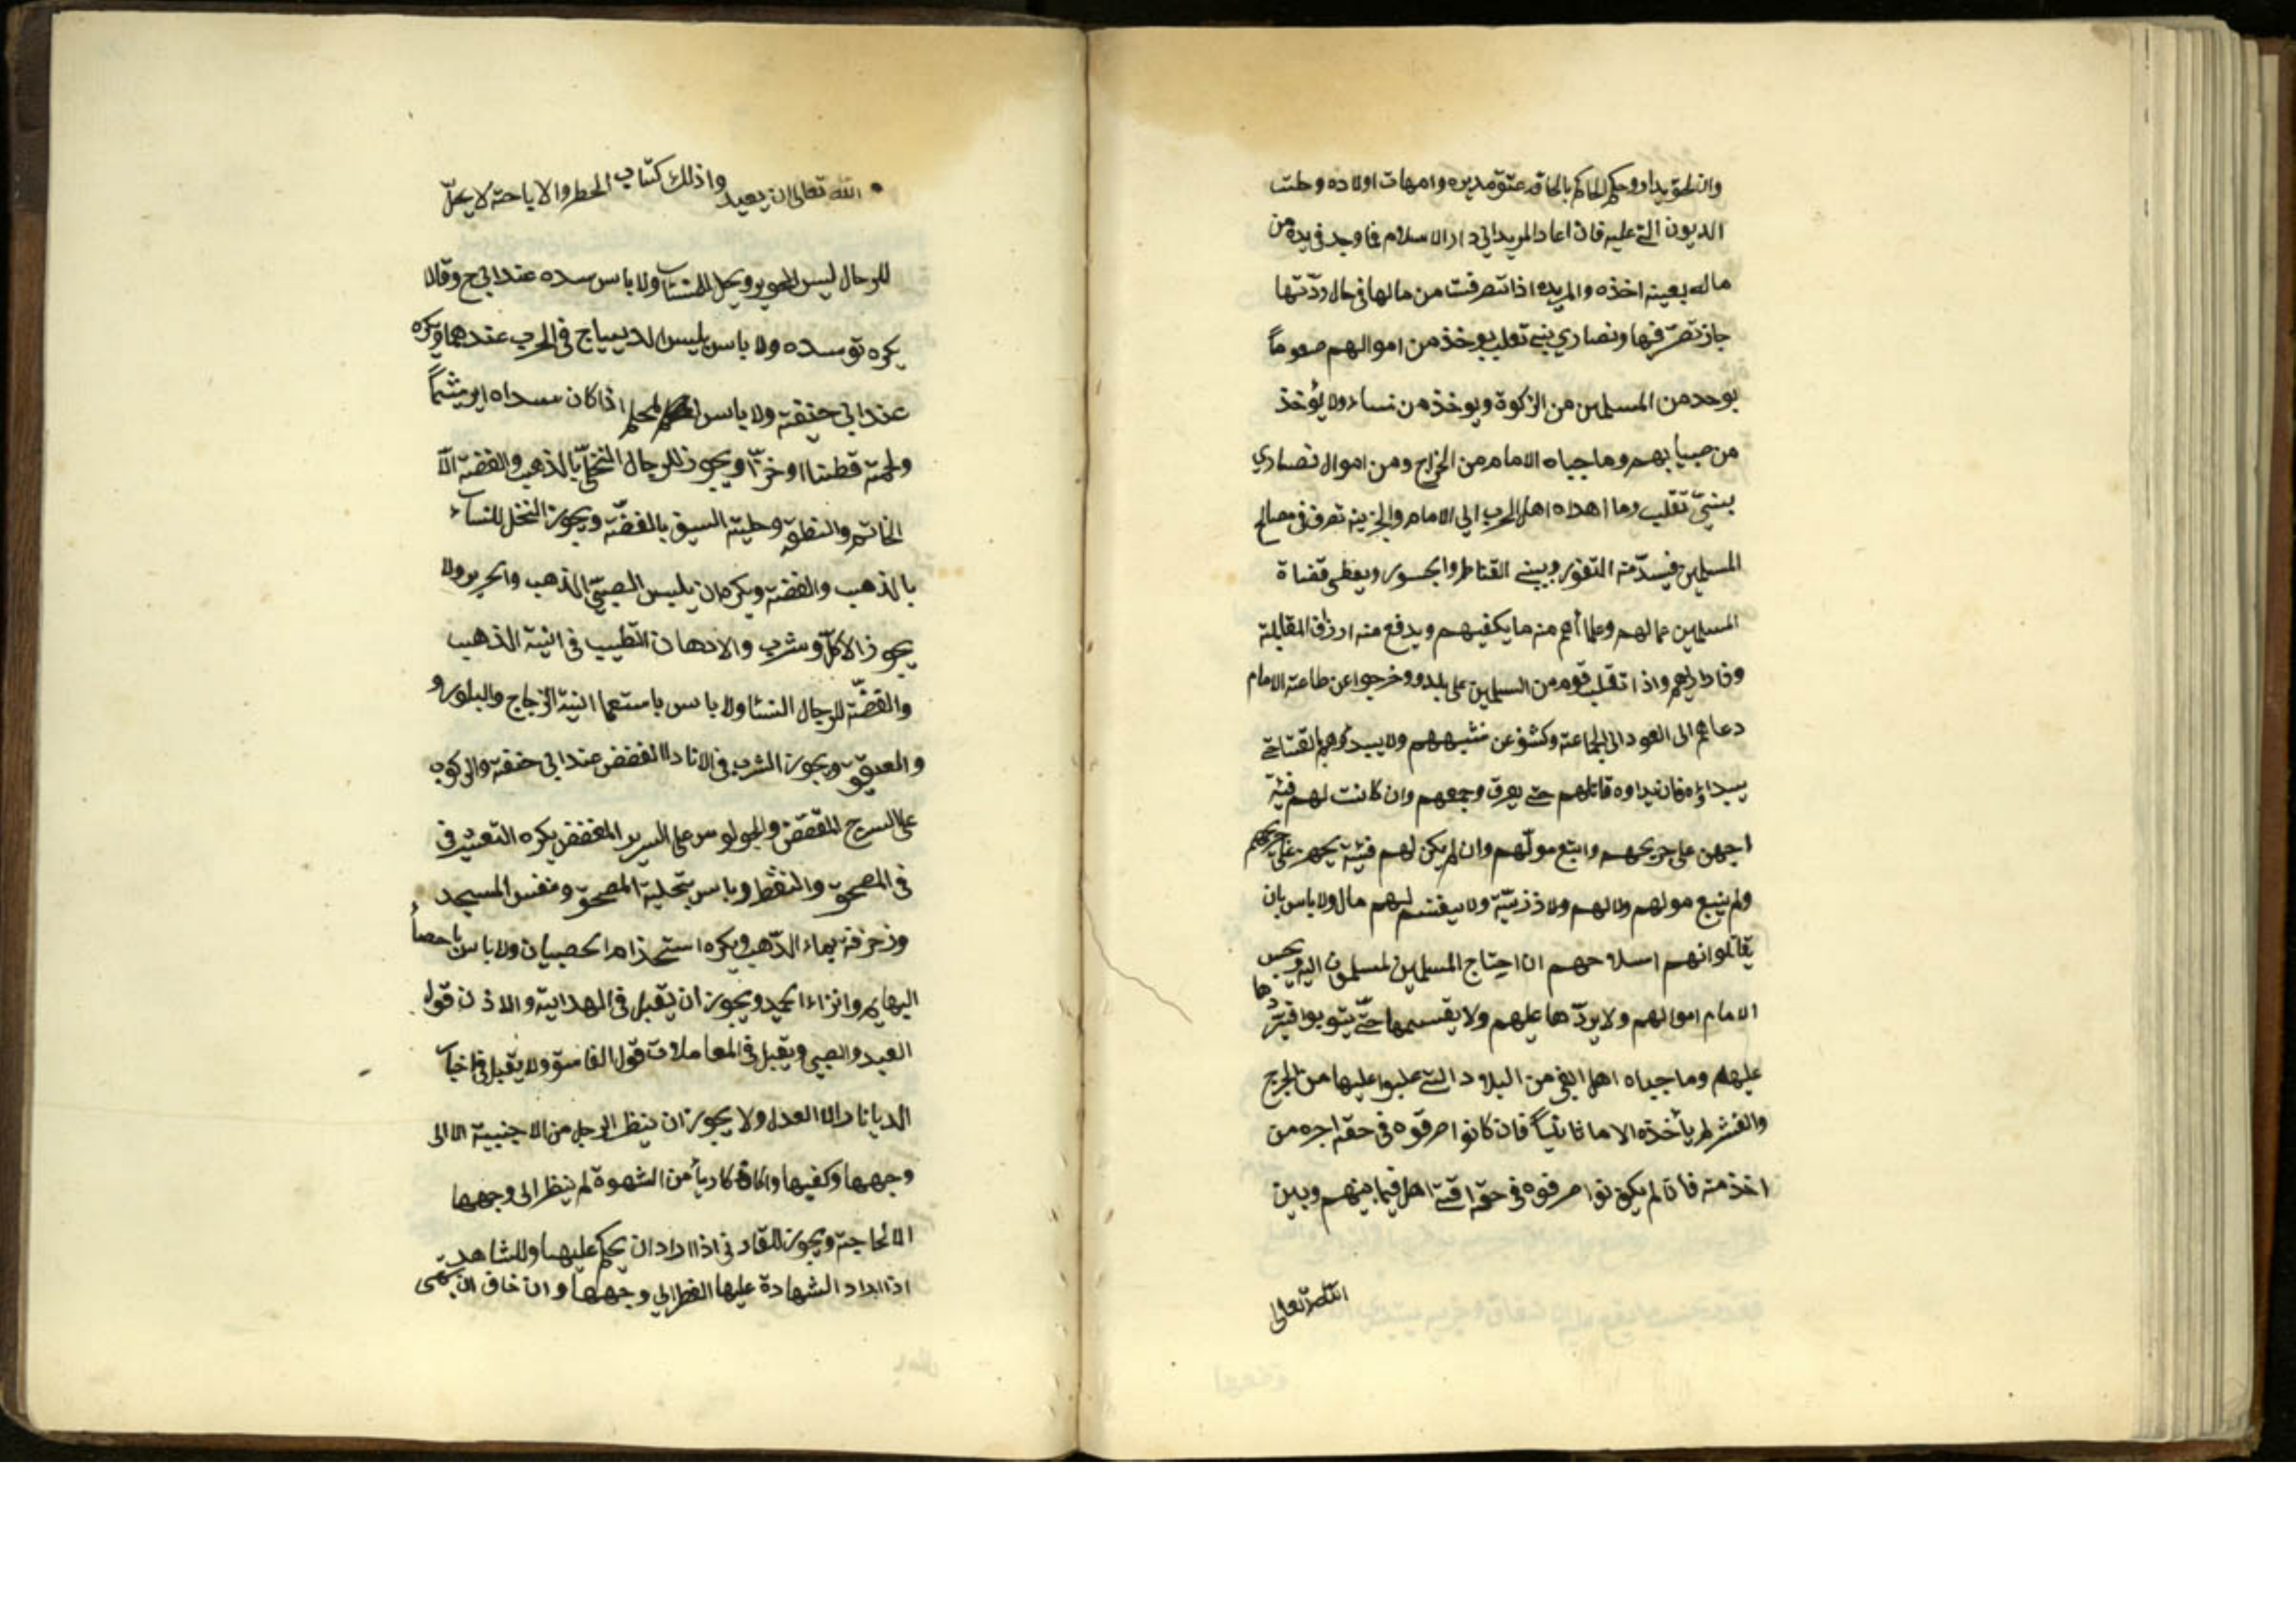 وان لحق بدار وحكم الحاكم بالحاقه عتق مدبره وامهات اولاده وحلت
الديون التي عليه فان اعاد المريد الى دار الاسلام فما وجد في يده من
ماله بعينه اخذه والمريده اذا تصرفت من مالها في حال ردّتها
جاز تصرّفها ونصاري بني تغلب يوخذ من اموالهم
يوحد من المسلمين من الزكوة ويوخذ من نساء ولا يُؤخذ
من صبيانهم وما جباه الامام من الخراج ومن اموال نصاري
بني تغلب وما اهداه اهل الحرب الي الامام والجزية تصرف في مصالح
المسلمين فيسدّ منه الثغور ويبني القناطر والجسور ويعطى قضاة
المسلمين عمالهم وعلمائهم منه ما يكفيهم ويدفع منه ارزاق المقاتلة
وذراريهم واذا تغلب قوم من المسلمين على بلد وخرجوا عن طاعة الامام
دعاهم الى العود الى الجماعة وكشف عن شبههم ولا يبدؤهم بالقتال حتى
يبداؤه فان بداوه قاتلهم حتى يفرق وجمعهم وان كانت لهم فئة
اجهز على جريحهم واتبع مولّهم وان لم يكن لهم فئة يجهز على جريحهم
ولم يتبع مولهم ولا لهم ولا ذزيّة ولا يقسم لهم مال ولا باس بان
يقاتلوا انهم اسلاحهم ان احتاج المسلمين لمسلمون اليه ويحبس
الامام اموالهم ولا يردّها عليهم ولا يقسمها حتّى يتوبوا فيردّها
عليهم وما جباه اهل البغي من البلاد التي غلبوا عليها من الخرج
والعشر لم يأخذه الامام ثانياً فان كانوا صرفوه في حقه اجره من
اخذ منه فان لم يكونوا صرفوه في حقه اهل فيما بينهم وبين
الله تعالى
الله تعالى ان يعيد واذلك كتاب الحظر والاباحة لا يحلّ
للرجال لبس الحرير ويحل للنساء ولا باس سده عند ابي ح وقالا
يكره توسده ولا باس بلبس الديباج في الحرب عندهما ويكره
عند ابي حنيفة ولا باس اذا كان سداه ابريشماً
ولحمته قطنا او خزّا ويجوز للرجال التحلّي بالذهب والفضة الّا
الخاتم والنطقه وحلية السيف بالفضّة ويجوز التحل للنساء
بالذهب والفضة ويكره ان يلبس الصبيّ الذهب والحرير ولا
يجوز الاكل وشرب والادهان التطيب في انية الذهب
والفضّة للرجال النسا ولا باس باستعما انية الزجاج والبلور و
والعقيق ويجوز الشرب في الاناداالمفضض عند ابي حنفة والركوب
على السرج المفضض والجولوس على السرير المفضض يكره التعشير في
في المصحف والنقط وباس بتحلية المصحف ونقس المسجد
وزخرفة بماء الذّهب ويكره استخذام الحصيان ولا باس باحصاُ
البهايم وانزاء الحميد ويجوز ان يقبل في الهداية والاذن قول
العبد والصبي ويقبل في المعاملات قول الفاسق ولا يقبل في اخبا
الديانات الا العدل ولا يجوز ان ينظر الرجل من الاجنبية الا الى
وجهها وكفيها يأمن الشهوة لم ينظر الى وجهها
الا لحاجة ويجوز للقاد في اذا اراد ان يحكم عليها وللشاهد
اذا اراد الشهادة عليها الى وجهها وان خاف ان